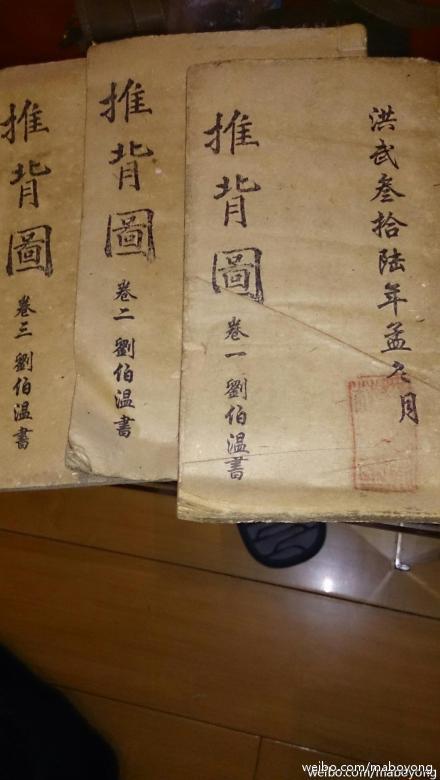 洪武叁拾陆年孟冬月
推背圖 卷一 劉伯温書
推背圖 卷二 劉伯温書
推背圖 卷三 劉伯温書
weibo.com/maboyong
weibo.com/maboyong